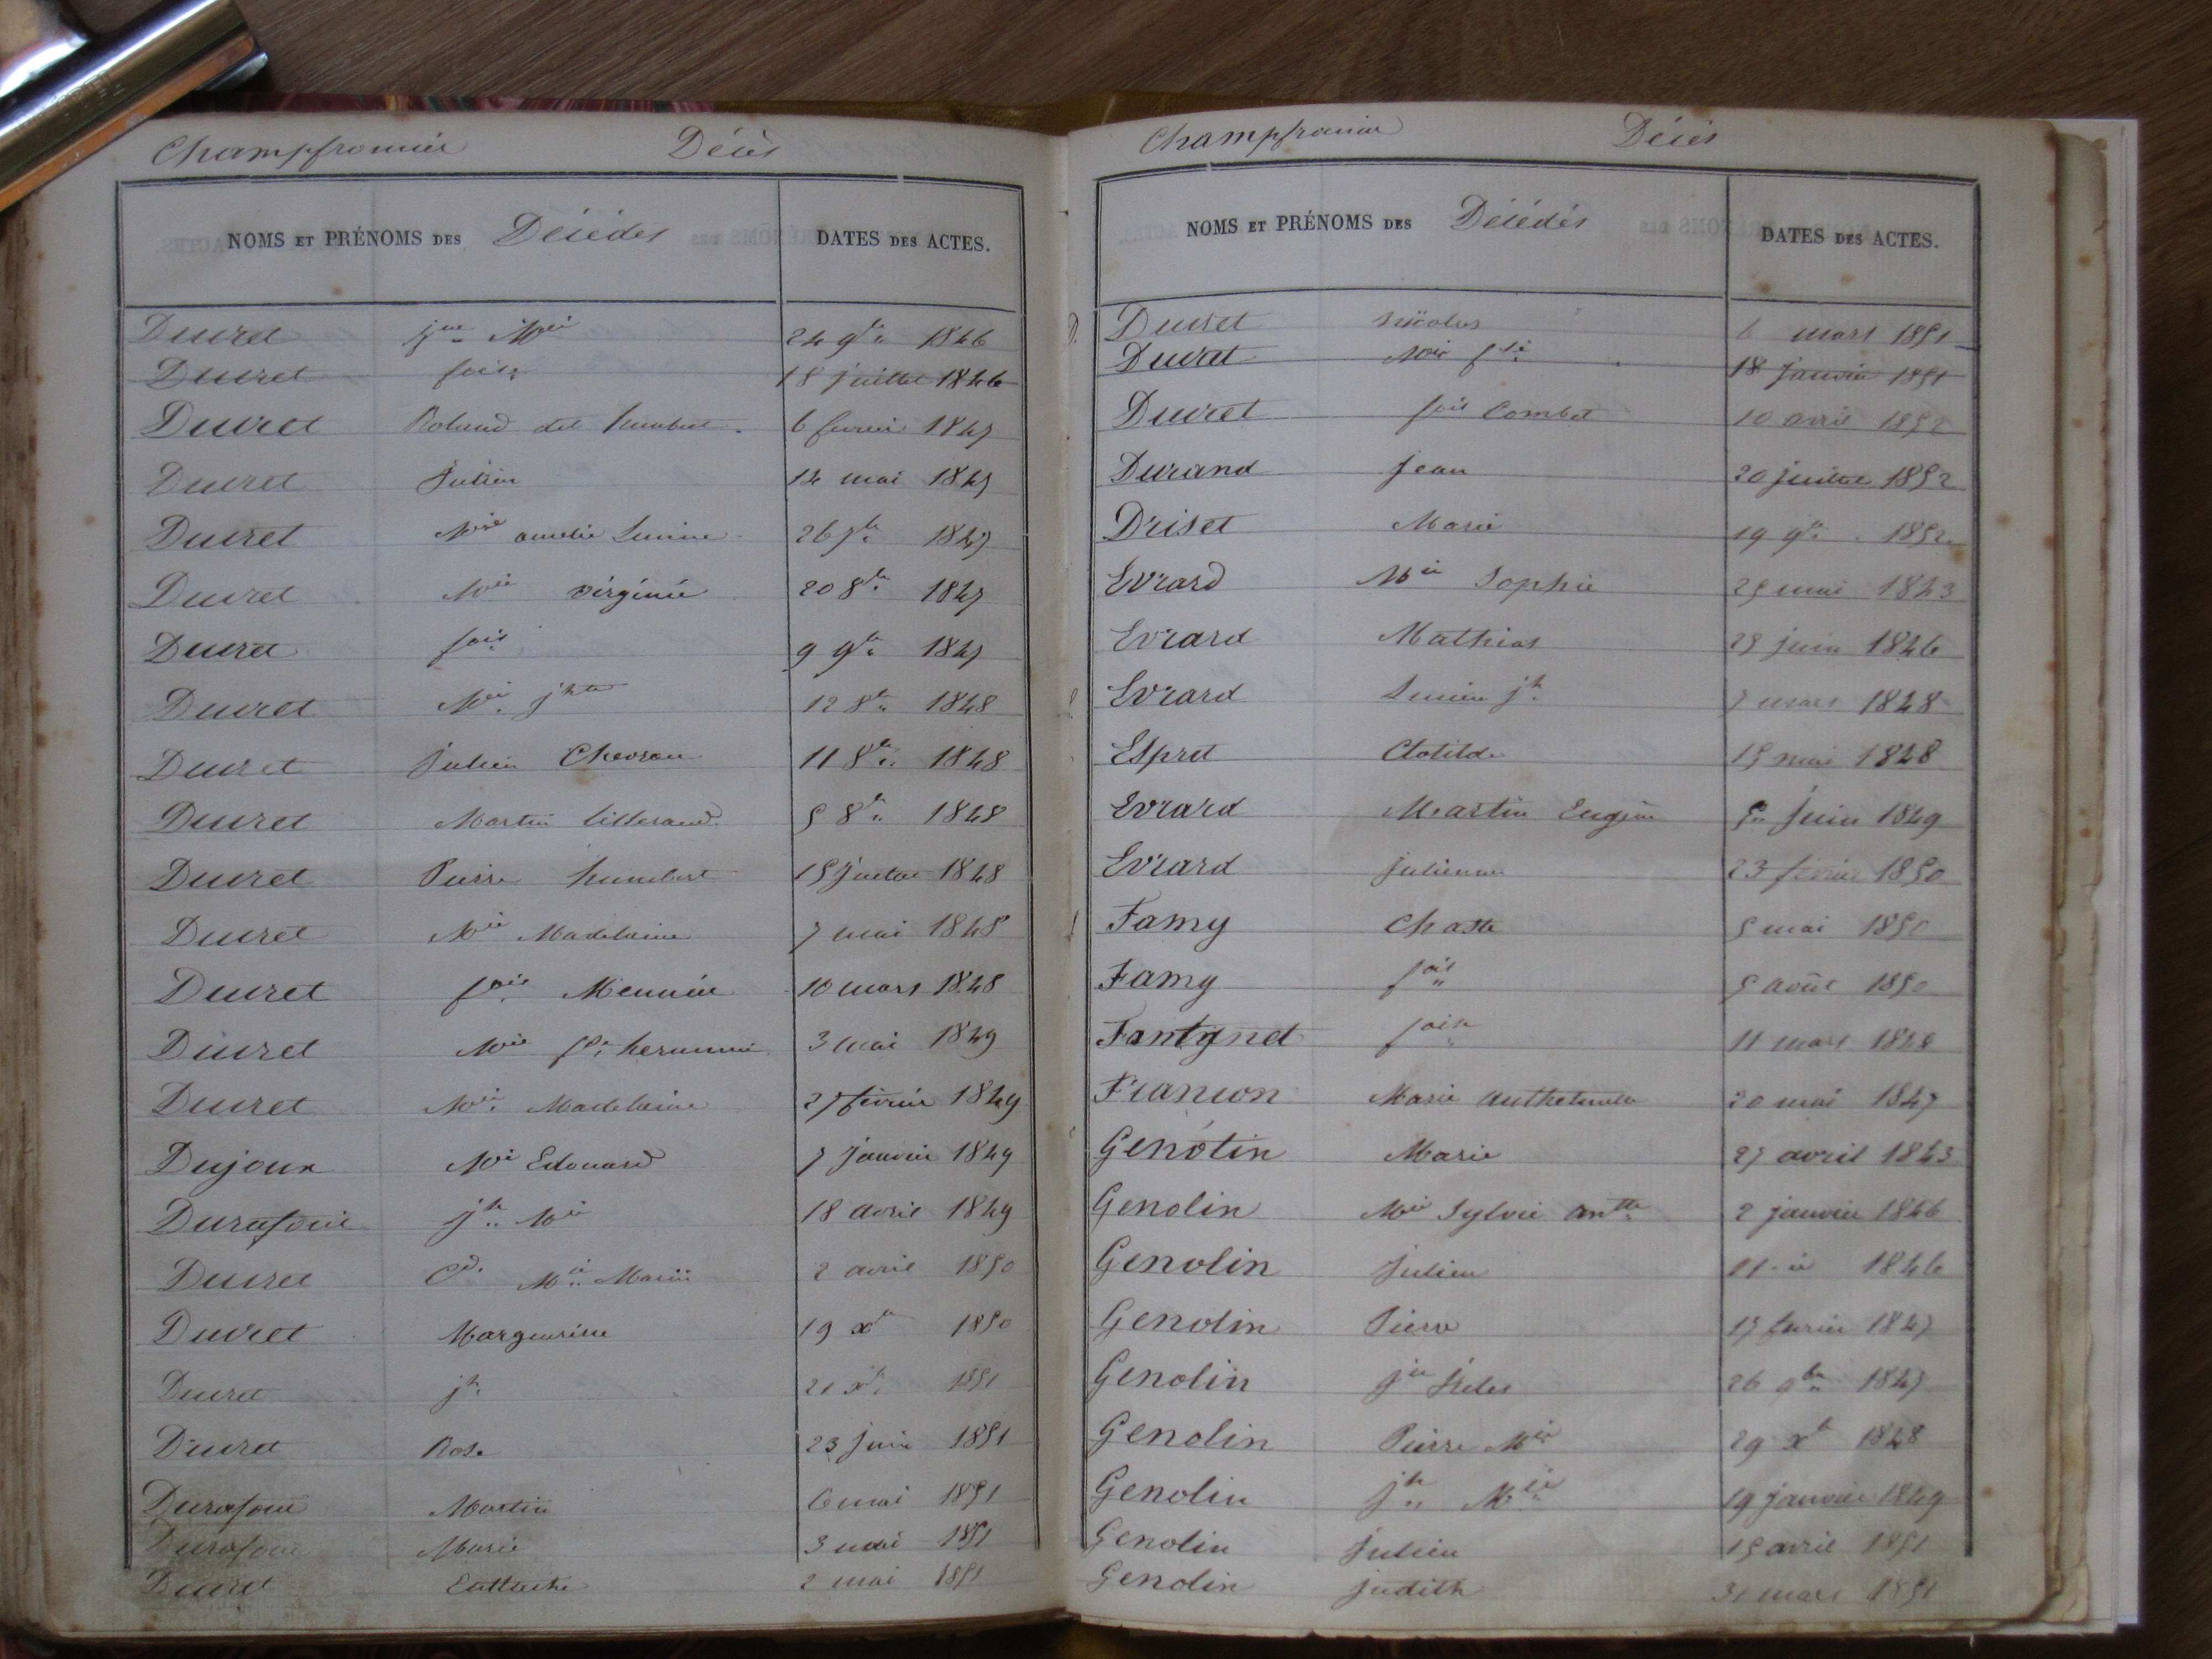 Champfromier Décès
NOMS ET PRÉNOMS DES Décédés DATES DES ACTES.
Ducret Jne Mie 24 9bre 1846
Ducret fois 18 juillet 1846
Ducret Roland dit humbert 6 fevrier 1847
Ducret Julien 14 mai 1847
Ducret Mie amelie 26 7bre 1847
Ducret Mie virginie 20 8bre 1847
Ducret fois 9 9bre 1847
Ducret Mie jhte 12 8bre 1848
Ducret Julien Chevron 11 8bre 1848
Ducret Martin tisserand 5 8bre 1848
Ducret Pierre humbert 15 juillet 1848
Ducret Mie Madelaine 7 mai 1848
Ducret fois Meunier 10 mars 1848
Ducret Mie 3 mai 1849
Ducret Mie Madelaine 27 février 1849
Dujoux Mie Edouard 7 janvier 1849
Durafour jh Mie 18 avril 1849
Ducret Cd. Mie Marie 2 avril 1850
Ducret Margueritte 19 xbre 1850
Ducret jh 21 xbre 1851
Ducret Rose 23 juin 1851
Durafour Martin 6 mai 1851
Durafour Marie 3 mai 1851
Ducret Eustache 2 mai 1851
Champfromier Décès
NOMS ET PRÉNOMS DES Décédés DATES DES ACTES.
Ducret nicolas 6 mars 1851
Ducret Mie 18 janvier 1851
Ducret fois Combet 10 avril 1852
Durand Jean 20 juillet 1852
Driset Marie 19 9bre 1852
Evrard Mie Sophie 25 mai 1843
Evrard Mathias 29 juin 1846
Evrard Lucien jh 7 mars 1848
Espret Clotilde 15 mai 1848
Evrard Martin Eugène juin 1849
Evrard julienne 23 fevrier 1850
Famy Chaste 5 mai 1850
Famy fois 5 août 1850
Fantgnet fois 11 mars 1848
Francon Marie 20 mai 1847
Genotin Marie 27 avril 1843
Genolin Mie Sylvie antte 2 janvier 1846
Genolin Julien 11 1846
Genolin Pierre 17 fevrier 1847
Genolin 26 9bre 1847
Genolin Pierre Mie 29 xbre 1848
Genolin jh Mie 19 janvier 1849
Genolin Julien 15 avril 1851
Genolin Judith 31 mars 1851